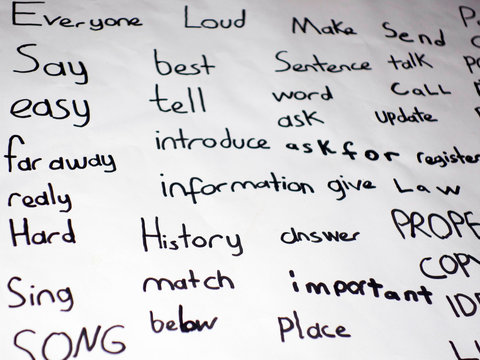 Everyone Loud Make Send
Say best Sentence talk
easy tell word CaLL
ask update
far away introduce ask for register
realy information give Law
Hard History answer
Sing match important
SONG below Place